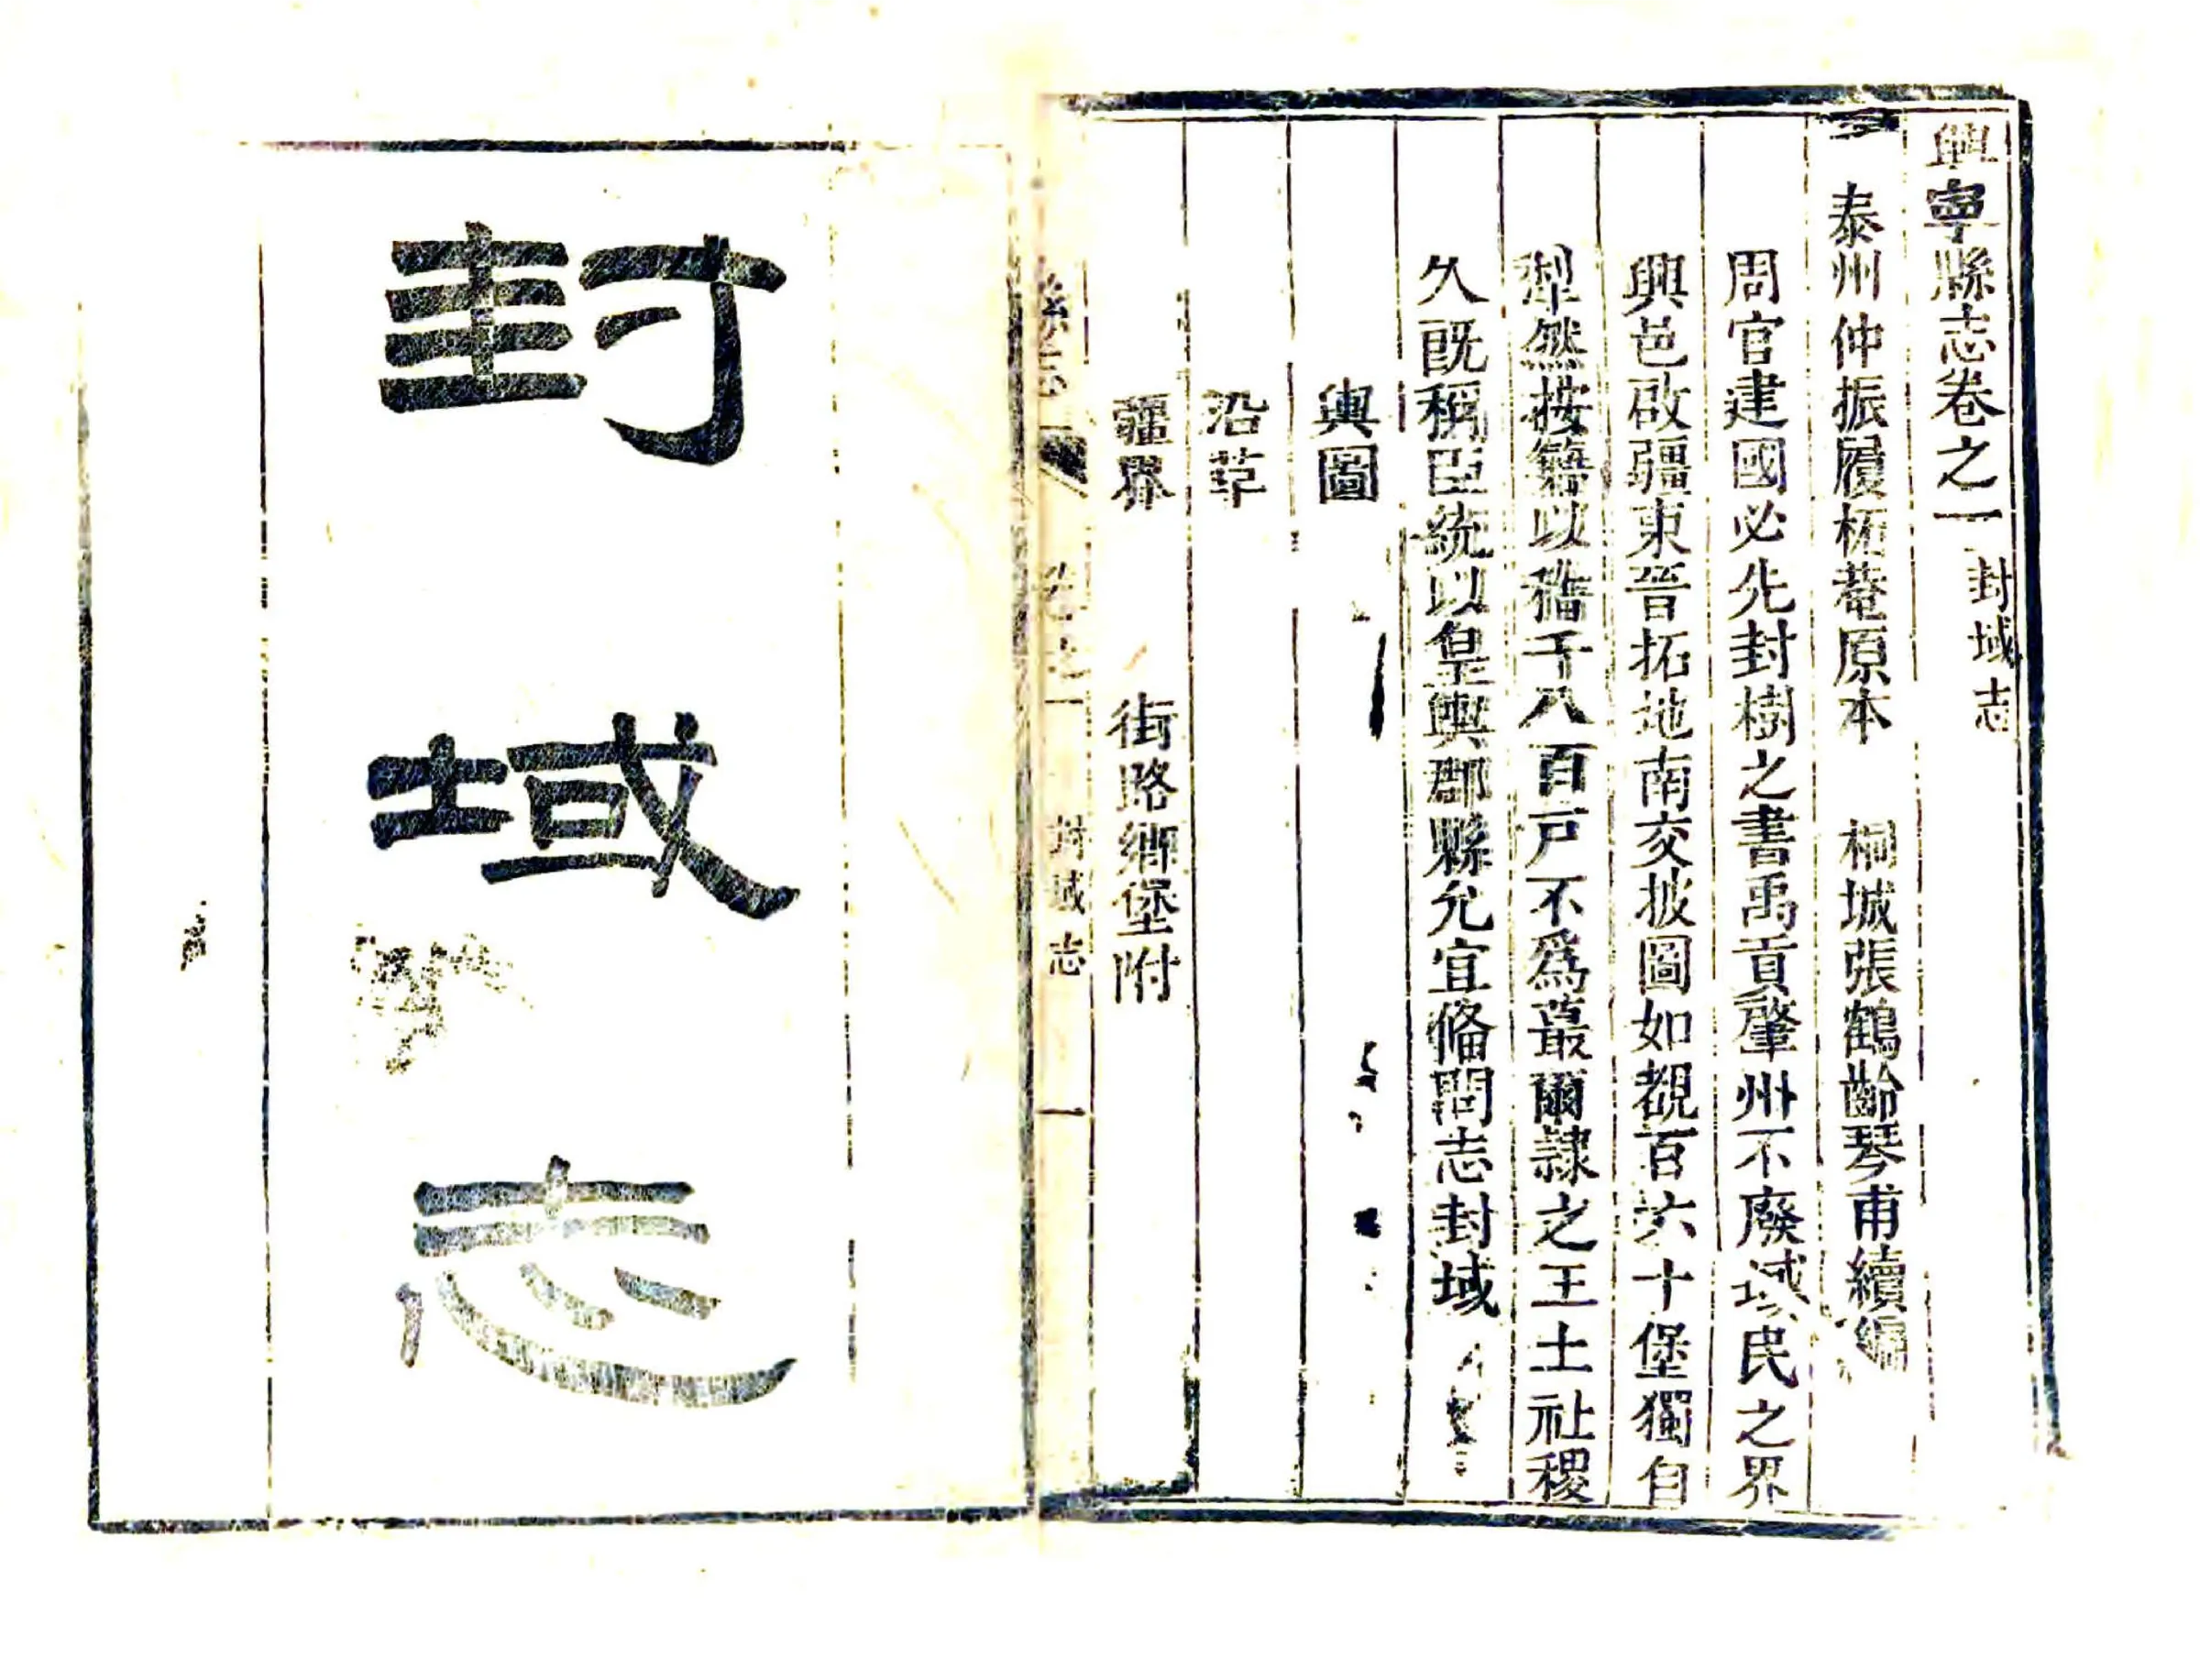 興寧縣志卷之一 封域志
泰州仲振履柘菴原本 桐城張鶴齡琴甫續編
周官建國必先封樹之書禹貢肇州不廢域民之界
興邑啟疆東晉拓地南交披圖如覩百六十堡獨自
犁然按籍以稽千八百戸不爲蕞爾隷之王土社稷
久旣稱臣統以皇輿郡縣允宜俻問志封域
輿圖
沿革
疆界 街路鄉堡附
縣志 卷之一 封域志 一
封域志